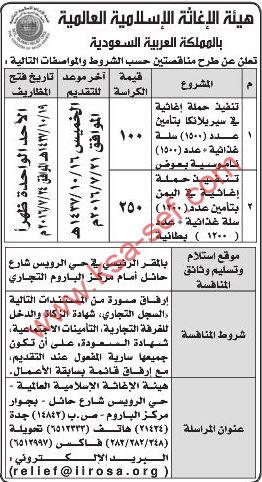 هيئة الإغاثة الإسلامية العالمية
بالمملكة العربية السعودية
تعلن عن طرح مناقصتين حسب الشروط والمواصفات التالية :
م
المشروع
قيمة الكراسة
آخر موعد للتقديم
تاريخ فتح المظاريف
١
تنفيذ حملة إغاثية
في سيريلانكا بتأمين
عدد (١٥٠٠) سلة
غذائية + عدد (١٥٠٠)
ناموسية بعوض
١٠٠
٢
تنفيذ حملة
إغاثية في اليمن
بتأمين عدد (١٢٠٠)
سلة غذائية + عدد
(١٢٠٠) بطانية
٢٥٠
الخميس ١٤٣٧/١٠/١٦هـ
الموافق ٢٠١٦/٧/٢١م
الأحد الواحدة ظهراً
١٤٣٧/١٠/١٩هـ
٢٠١٦/٧/٢٤م
موقع استلام
وتسليم وثائق
المنافسة
بالمقر الرئيسي في حي الرويس شارع
حائل أمام مركز الباروم التجاري
شروط المنافسة
إرفاق صورة من المستندات التالية
(السجل التجاري، شهادة الزكاة والدخل
للغرفة التجارية، التأمينات الاجتماعية،
شهادة السعودة، على أن تكون
جميعها سارية المفعول عند التقديم،
مع إرفاق قائمة بسابقة الأعمال.
عنوان المراسلة
هيئة الإغاثة الإسلامية العالمية -
حي الرويس شارع حائل - بجوار
مركز الباروم - ص.ب (١٤٨٤٢) جدة
(٢١٤٣٤) هاتف (٦٥١٢٣٣٣) تحويلة
(٢٨٣/٢٨٢/٢٤٨) فاكس (٦٥١٢٩٩٧)
البريد الإلكتروني :
(relief@iirosa.org)
www.ksa-sef.com